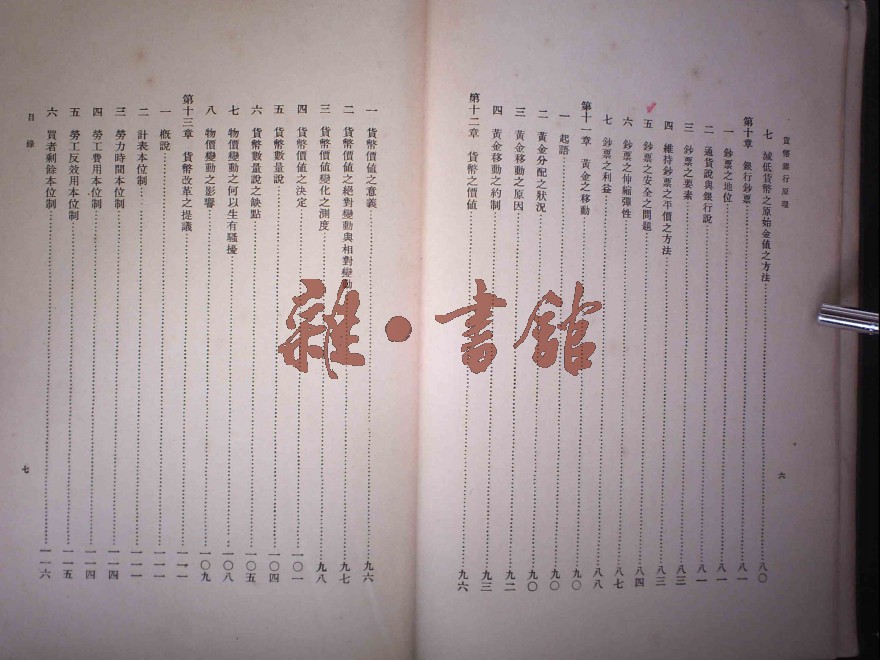 貨幣銀行原理
七 減低貨幣之原始金值之方法 八〇
第十章 銀行鈔票 八一
一 鈔票之地位 八一
二 通貨說與銀行說 八一
三 鈔票之要素 八三
四 維持鈔票之平價之方法 八三
五 鈔票之安全之問題 八四
六 鈔票之伸縮彈性 八七
七 鈔票之利益 八八
第十一章 黃金之移動 九〇
一 起語 九〇
二 黃金分配之狀況 九〇
三 黃金移動之原因 九二
四 黃金移動之約制 九三
第十二章 貨幣之價值 九六
六
一 貨幣價值之意義 九六
二 貨幣價值之絕對變動與相對變動 九七
三 貨幣價值變化之測度 九八
四 貨幣價值之決定 一〇一
五 貨幣數量說 一〇四
六 貨幣數量說之缺點 一〇五
七 物價變動之何以生有騷擾 一〇八
八 物價變動之影響 一〇九
第十三章 貨幣改革之提議 一一一
一 概說 一一一
二 計表本位制 一一一
三 勞力時間本位制 一一四
四 勞工費用本位制 一一四
五 勞工反效用本位制 一一五
六 買者剩餘本位制 一一六
目錄
七
雜·書館